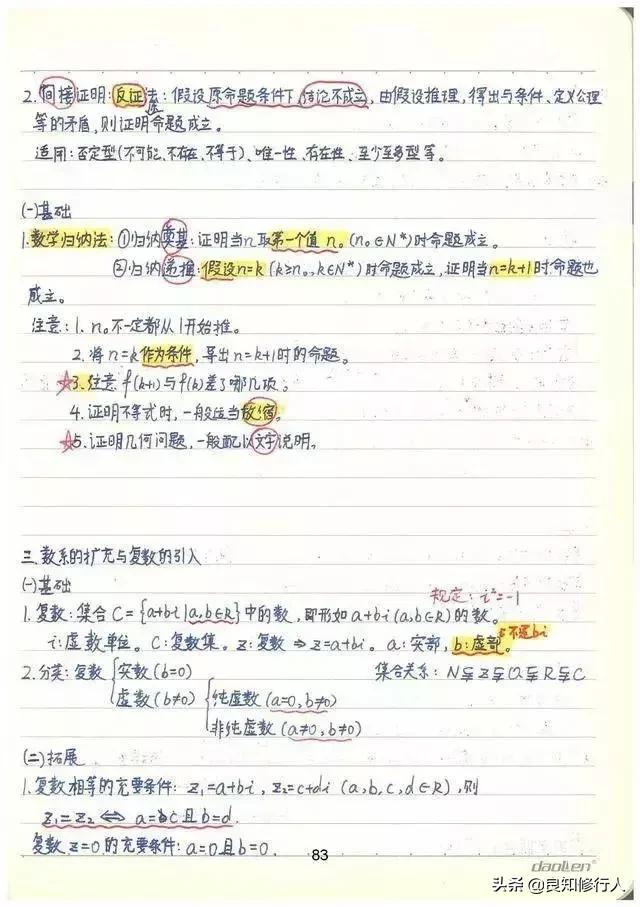 2.间接证明:反证法:假设原命题条件下,结论不成立,由假设推理,得出与条件、定义公理
等的矛盾,则证明命题成立。
适用:否定型(不可能、不存在、不等于)、唯一性、存在性、至少至多型等。
(一)基础
1.数学归纳法:①归纳奠基:证明当n取第一个值n₀(n₀∈N*)时命题成立。
②归纳递推:假设n=k(k≥n₀,k∈N*)时命题成立,证明当n=k+1时命题也
成立。
注意:1、n₀不一定都从1开始推。
2.将n=k作为条件,导出n=k+1时的命题。
☆3.注意f(k+1)与f(k)差了哪几项。
4.证明不等式时,一般适当放缩。
☆5.证明几何问题,一般配以文字说明。
三.数系的扩充与复数的引入
(一)基础
规定:i²=-1
1.复数:集合C={a+bi|a,b∈R}中的数,即形如a+bi(a,b∈R)的数。
不是bi
i:虚数单位。C:复数集。z:复数⇒z=a+bi。a:实部,b:虚部。
2.分类:复数{实数(b=0) 集合关系:N⫋Z⫋Q⫋R⫋C
虚数(b≠0){纯虚数(a=0,b≠0)
非纯虚数(a≠0,b≠0)
(二)拓展
1.复数相等的充要条件:z₁=a+bi,z₂=c+di(a,b,c,d∈R),则
z₁=z₂⇔a=c且b=d.
复数z=0的充要条件:a=0且b=0.
83
daolen®
头条@良知修行人